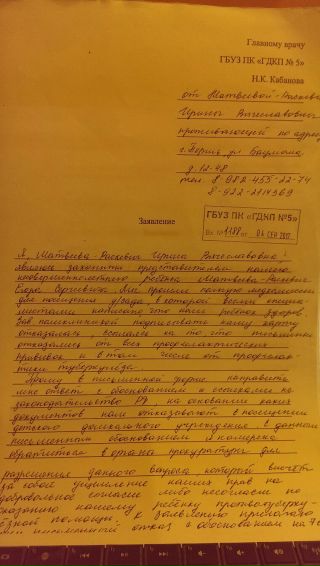 Главному врачу
ГБУЗ ПК «ГДКП № 5»
Н.К. Кабанова
от Матвеевой-Раскевич
Ирины Вячеславовны
проживающей по адресу
г. Пермь ул Баумана
д. 12-48
тел. 8-982-455-22-74
8-922-2114569
ГБУЗ ПК «ГДКП №5»
Вх № 1188 от 04 СЕН 2017
Заявление
Я, Матвеева-Раскевич Ирина Вячеславовна
законный представителем нашего
несовершеннолетнего ребенка
Мы прошли полную
для посещения д/сада, в которой всеми специа-
листами написано что наш ребенок здоров.
Зав поликлиникой подписывать нашу карту
отказалась, ссылаясь на то, что
отказались от всех профилактических
прививок, и в том числе от профилак-
тики туберкулеза.
Прошу в письменной форме направить
мне ответ с обоснованием и ссылками на
законодательство РФ на основании каких
документов нам отказывают в посещении
детского дошкольного учреждение в данном
письменным обоснованием я намерена
обратиться в органы прокуратуры для
разрешения данного вопроса который влечет
за собой ущемление наших прав на
добровольное согласие либо несогласие по
оказанию нашему ребенку противотуберку-
лезной помощи. К заявлению прилагаю
письменный отказ с обоснованием на